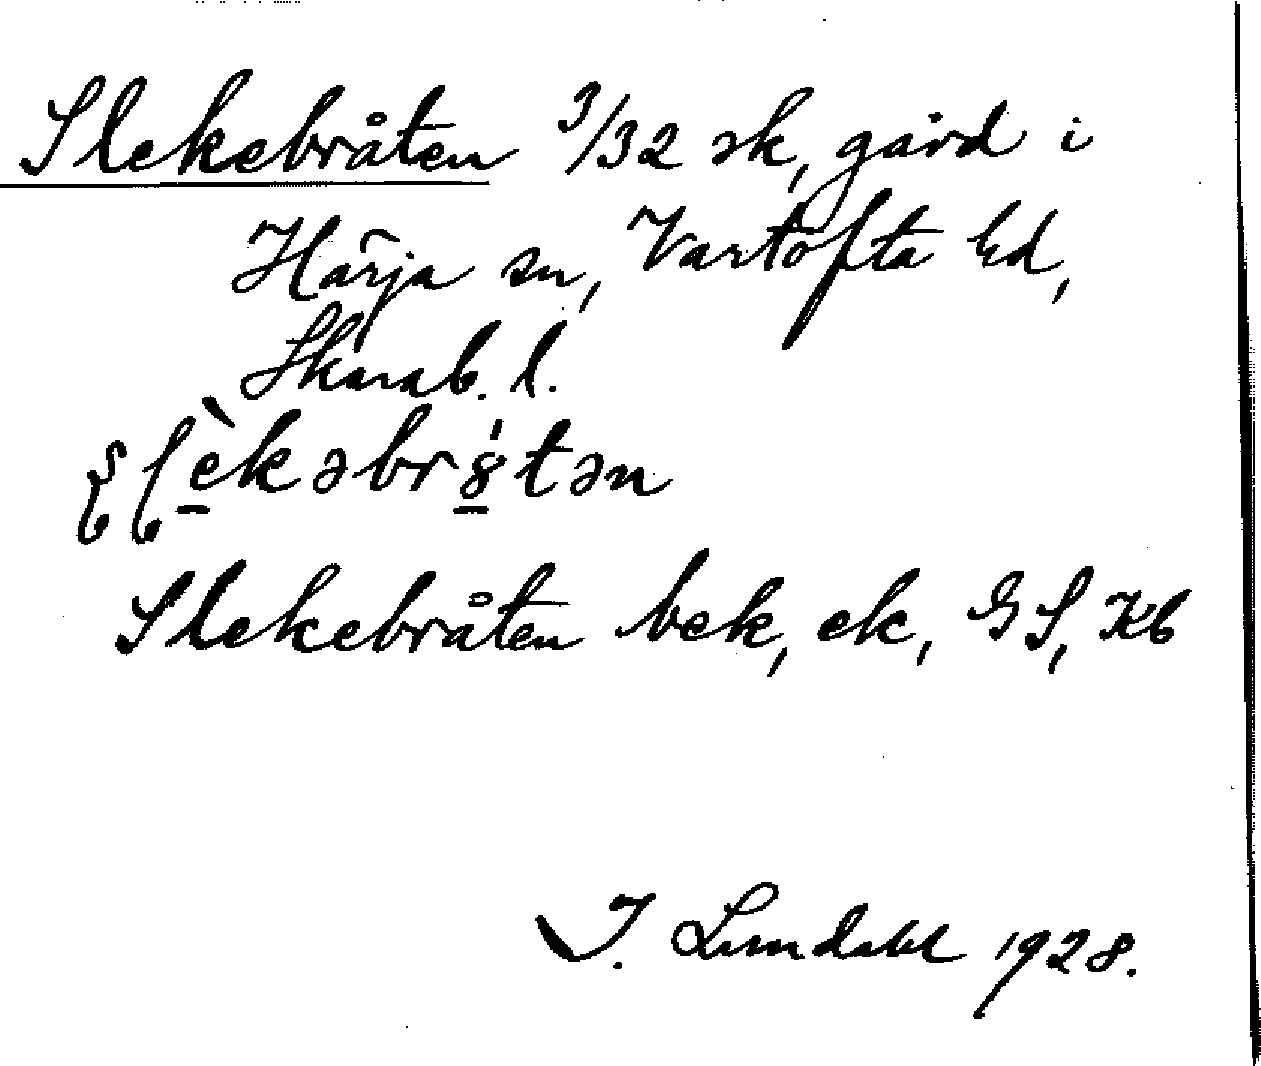 Slekebråten 3/32 sk, gård i
Härja sn, Vartofta hd,
Skarab. l.
ʂɭèkəbr8̍tən
Slekebråten bek, ek, GS, Kb
I. Lundahl 1928.